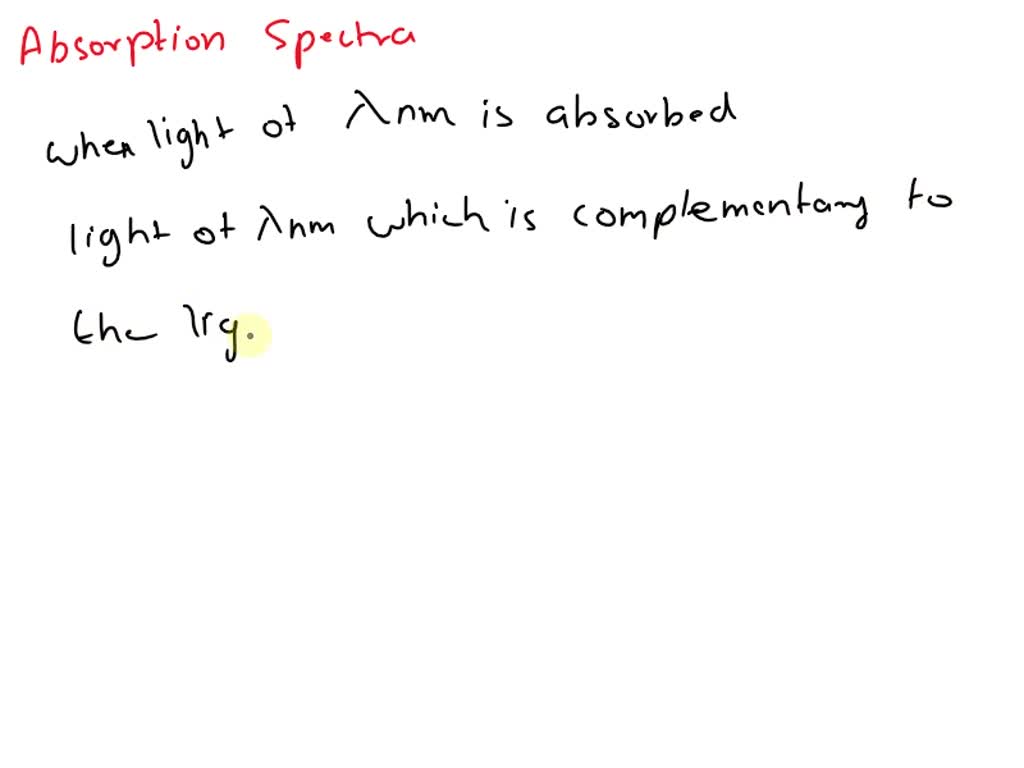 Absorption Spectra
when light of λnm is absorbed
light of λnm which is complementary to
the